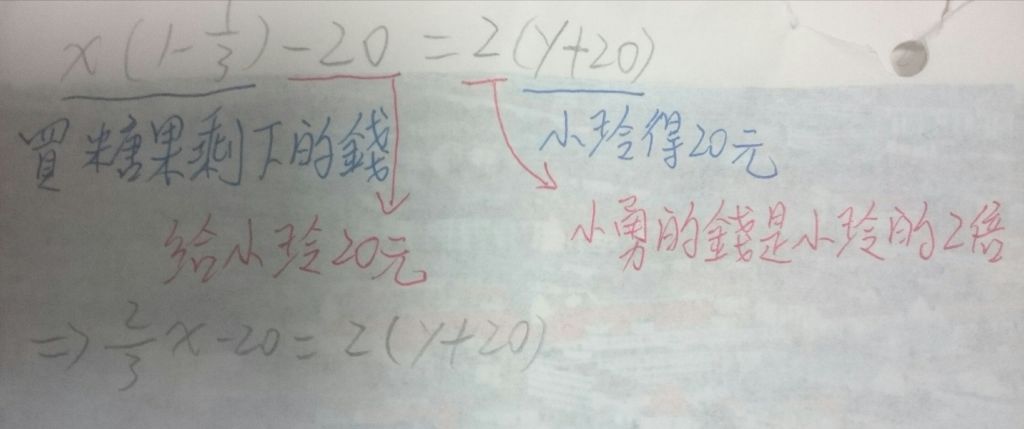 x(1-1/3)-20 = 2(y+20)
買糖果剩下的錢 小玲得20元
給小玲20元 小勇的錢是小玲的2倍
⇒ 2/3 x-20 = 2(y+20)